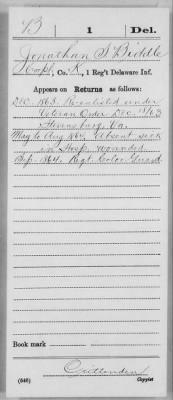 B | 1 | Del.
Jonathan S Biddle
Corpl, Co. K, 1 Reg't Delaware Inf.
Appears on Returns as follows:
Dec. 1863. Re-enlisted under
Veteran Order Dec. 18/63
Stevensburg, Va.
May to Aug 1864, Absent sick
in Hosp. wounded.
Sep. 1864. Regt. Color Guard
Book mark
Crittenden
(546) Copyist